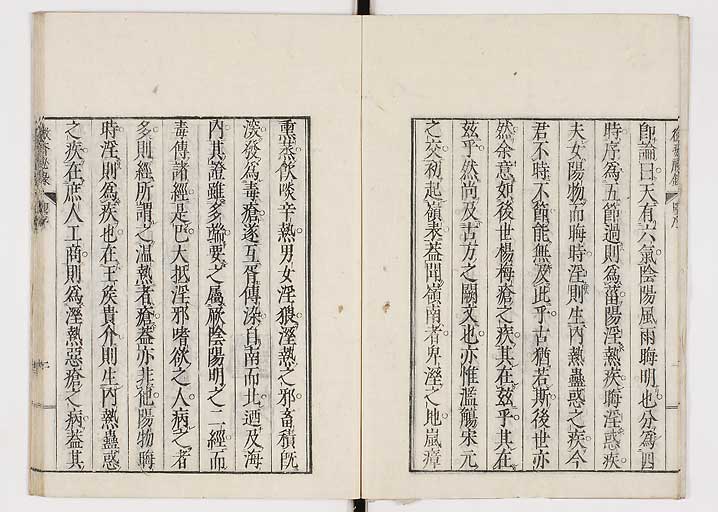 卽論曰天有六氣陰陽風雨晦明也分爲四
時序爲五節過則爲菑陽淫熱疾晦淫惑疾
夫女陽物而晦時淫則生内熱蠱惑之疾今
君不時不節能無及此乎古猶若斯後世亦
然余意如後世楊梅瘡之疾其在茲乎其在
茲乎然尚及古方之闕文也亦惟濫觴宋元
之交初起嶺表葢聞嶺南者卑溼之地嵐瘴
熏蒸飲啖辛熱男女淫猥溼熱之邪畜積旣
深發爲毒瘡遂互胥傳染自南而北迺及海
内其證雖多端要之屬厥陰陽明之二經而
毒傳諸經是巳大抵淫邪嗜欲之人病之者
多則經所謂之溫熱者瘡葢亦非他陽物晦
時淫則爲疾也在王矦貴介則生内熱蠱惑
之疾在庶人工商則爲溼熱惡瘡之病葢其